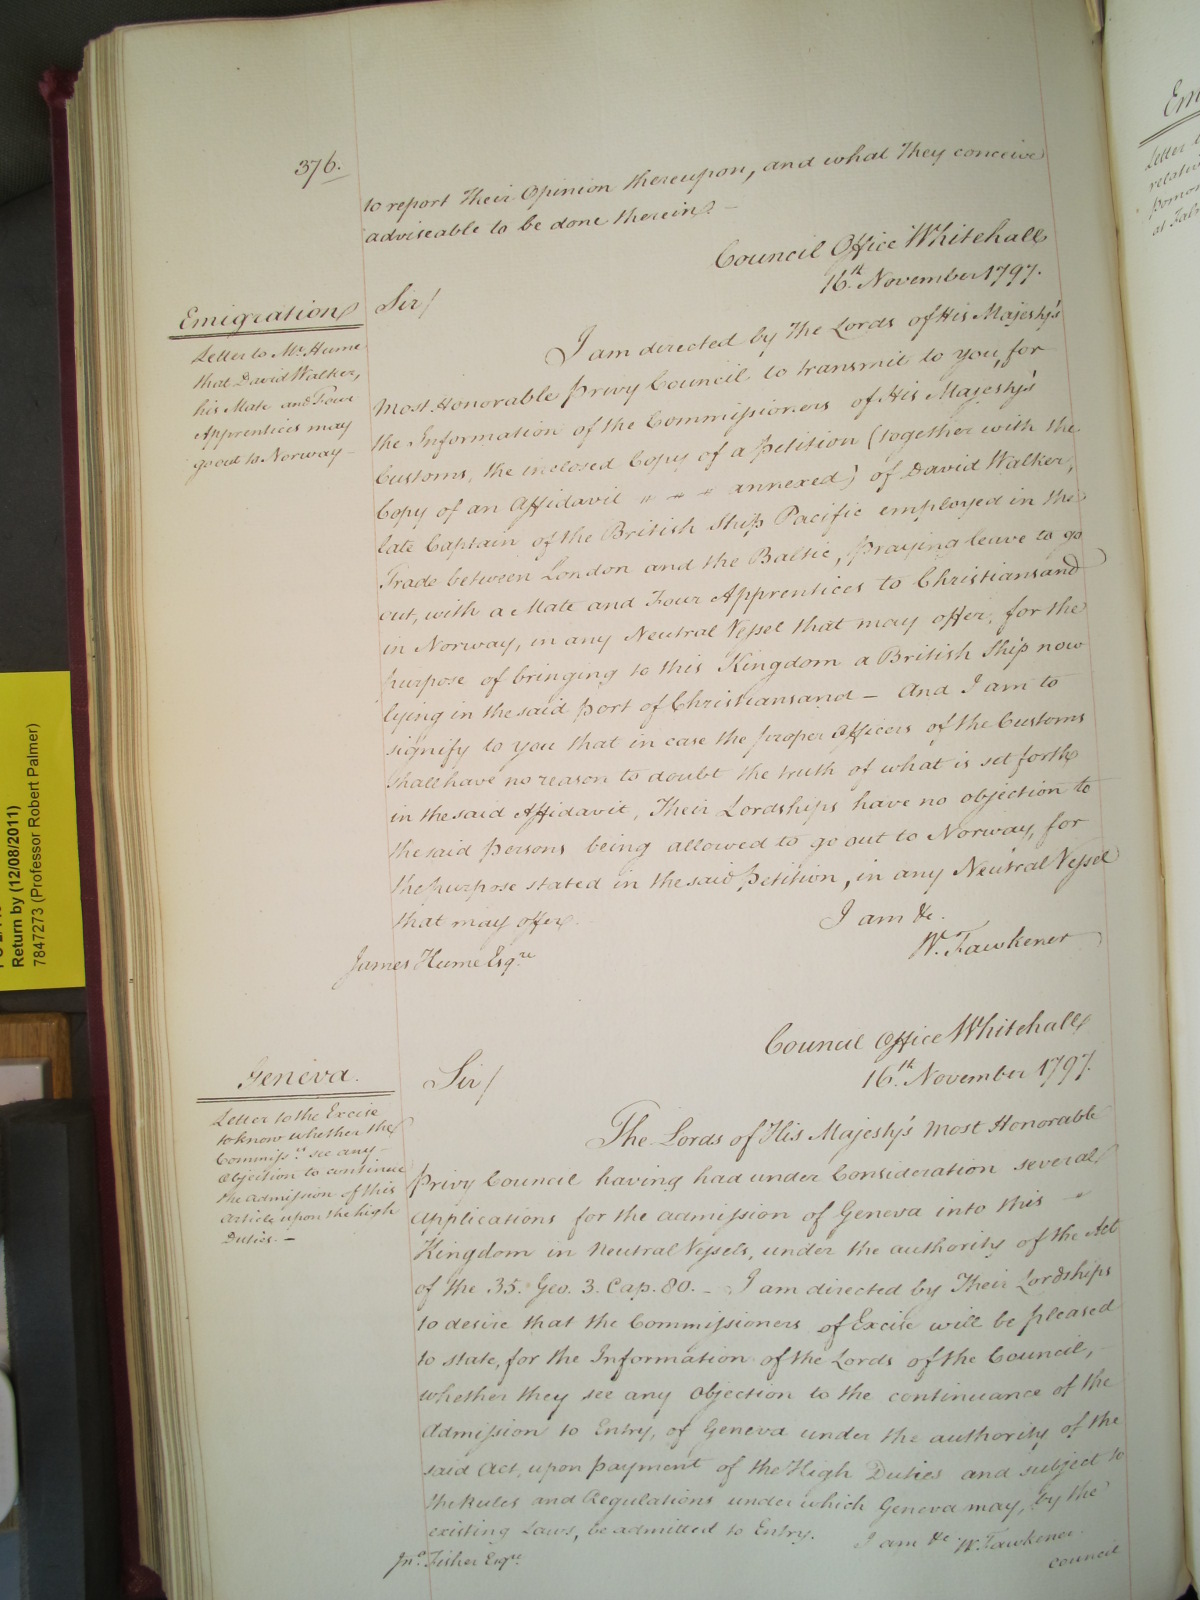 376.
to report Their Opinion thereupon, and what They conceive
adviseable to be done therein. —
Council Office Whitehall
16th November 1797.
Emigration
Letter to Mr Hume
that David Walker,
his Mate and Four
Apprentices may
go out to Norway —
Sir/
I am directed by The Lords of His Majesty's
Most Honorable Privy Council to transmit to you, for
the Information of the Commissioners of His Majesty's
Customs, the inclosed Copy of a Petition (together with the
Copy of an Affidavit " " " annexed) of David Walker,
late Captain of the British Ship Pacific employed in the
Trade between London and the Baltic, praying leave to go
out, with a Mate and Four Apprentices to Christiansand
in Norway, in any Neutral Vessel that may offer, for the
purpose of bringing to this Kingdom a British Ship now
lying in the said Port of Christiansand — And I am to
signify to you that in case the proper Officers of the Customs
shall have no reason to doubt the truth of what is set forth
in the said Affidavit, Their Lordships have no objection to
the said Persons being allowed to go out to Norway, for
the purpose stated in the said Petition, in any Neutral Vessel
that may offer.
I am &c.
W. Fawkener
James Hume Esqre
Council Office Whitehall
16th November 1797.
Geneva.
Letter to the Excise
to know whether the
Commissrs see any
Objection to continue
the admission of this
Article upon the high
Duties. —
Sir/
The Lords of His Majesty's Most Honorable
Privy Council having had under Consideration several
Applications for the admission of Geneva into this "
Kingdom in Neutral Vessels, under the authority of the Act
of the 35. Geo. 3. Cap. 80. — I am directed by Their Lordships
to desire that the Commissioners of Excise will be pleased
to state, for the Information of the Lords of the Council, —
whether they see any Objection to the continuance of the
Admission to Entry, of Geneva under the authority of the
said Act, upon Payment of the High Duties and subject to
the Rules and Regulations under which Geneva may, by the
existing Laws, be admitted to Entry.
I am &c. W. Fawkener.
Jno. Fisher Esqre
Council
Letter
Return by (12/08/2011)
7847273 (Professor Robert Palmer)